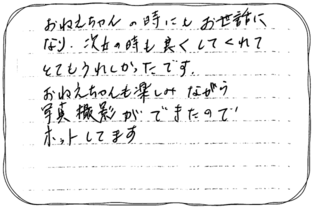 おねえちゃんの時にもお世話に
なり、次女の時も良くしてくれて
とてもうれしかったです。
おねえちゃんも楽しみながら
写真撮影ができたので
ホットしてます